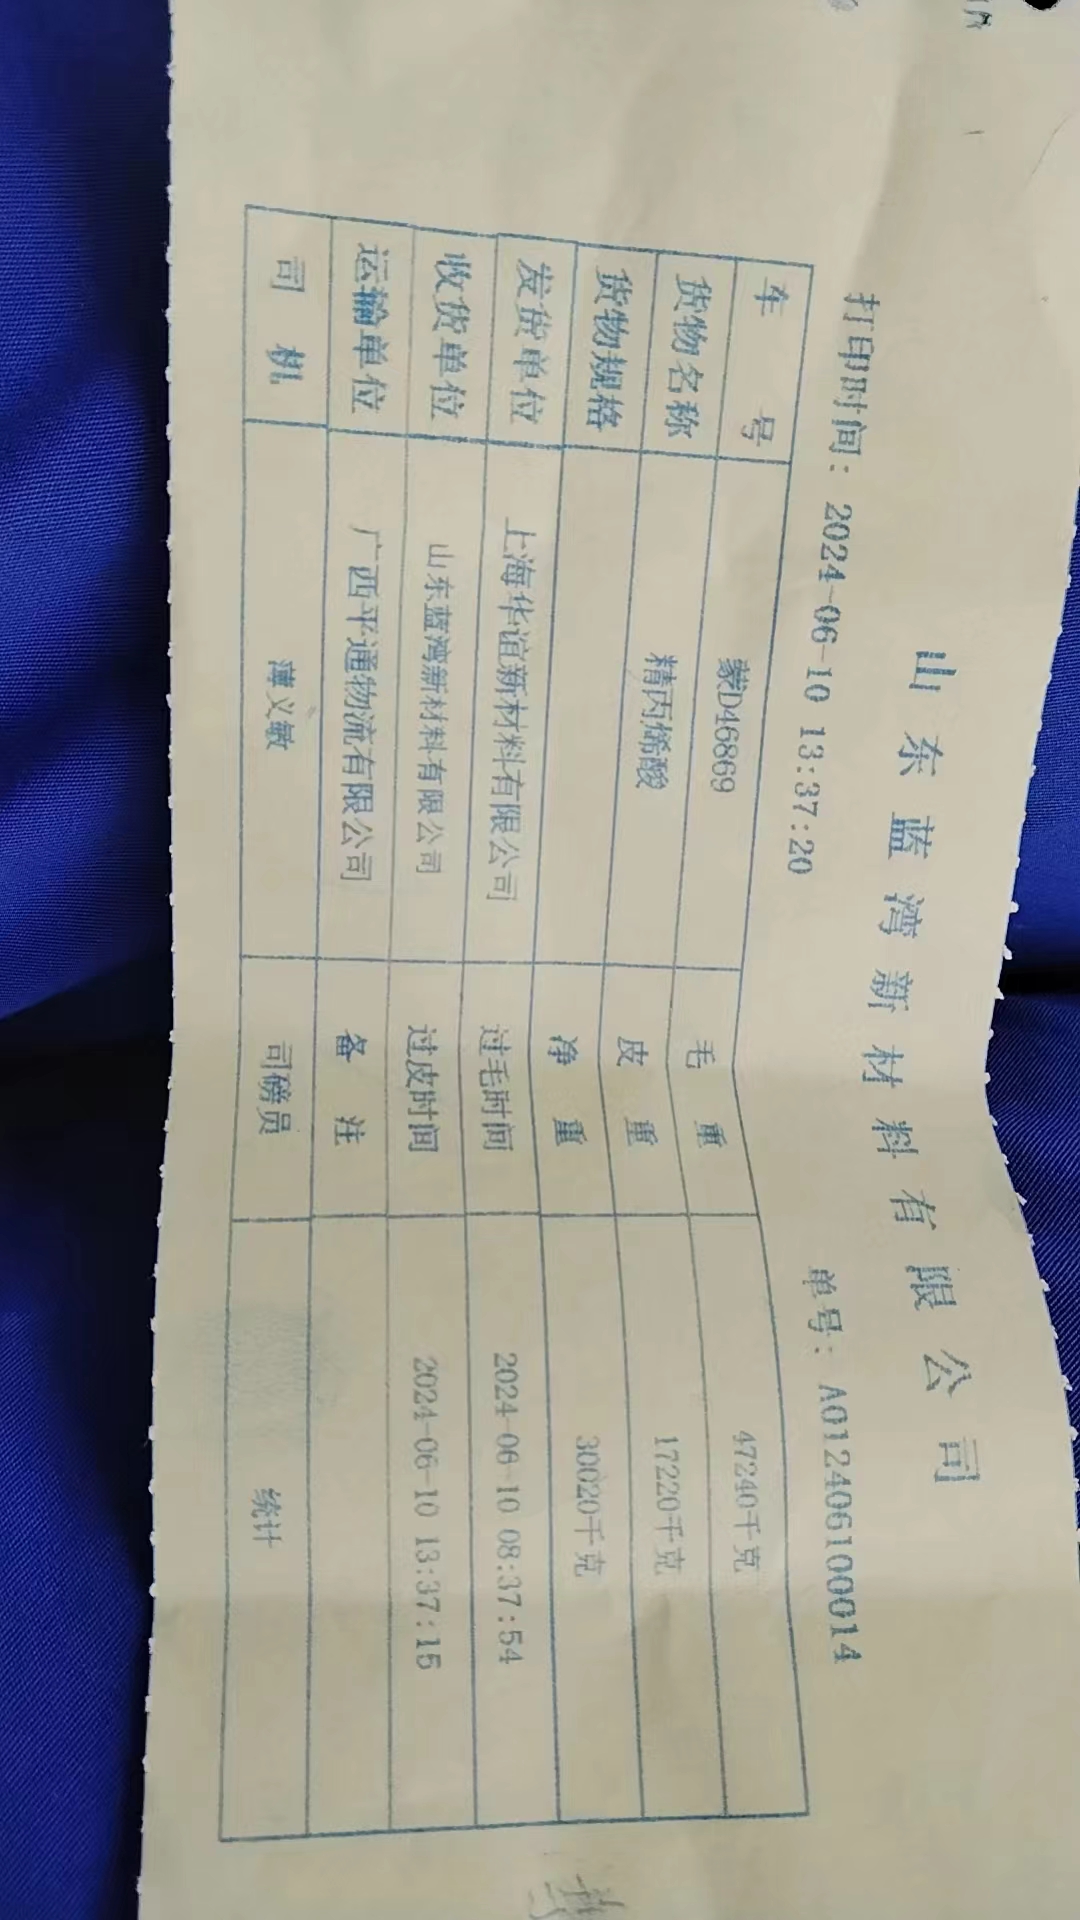 山东蓝湾新材料有限公司
打印时间：2024-06-10 13:37:20 单号：A012406100014
车号 蒙D46869 毛重 47240千克
货物名称 精丙烯酸 皮重 17220千克
货物规格 净重 30020千克
发货单位 上海华谊新材料有限公司 过毛时间 2024-06-10 08:37:54
收货单位 山东蓝湾新材料有限公司 过皮时间 2024-06-10 13:37:15
运输单位 广西平通物流有限公司 备注
司机 薄义敏 司磅员 统计